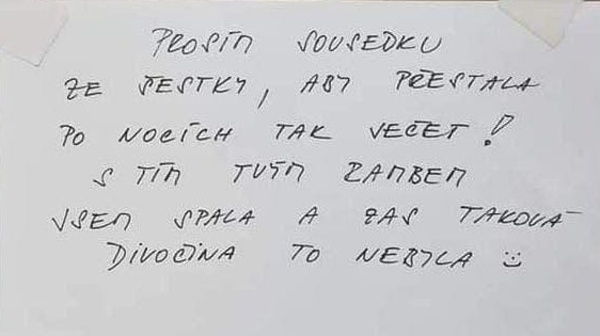 PROSÍM SOUSEDKU
ZE ŠESTKY, ABY PŘESTALA
PO NOCÍCH TAK VEČET!
S TÍM TVÝM RAMBEM
VSEM SPALA A ZAS TAKOVÁ
DIVOČINA TO NEBYLA ☺